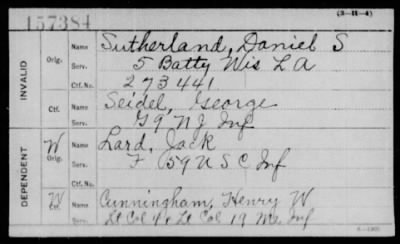 157384
(3-11-4)
INVALID
Orig. Name Sutherland, Daniel S
Serv. 5 Batty Wis L A
Ctf. No. 273441
Ctf. Name Seidel, George
Serv. G 9 N J Inf
DEPENDENT
W Orig. Name Lard, Jack
Serv. F 59 U S C Inf
W Ctf. Name Cunningham, Henry W
Serv. Lt Col & Lt Col 19 Me Inf